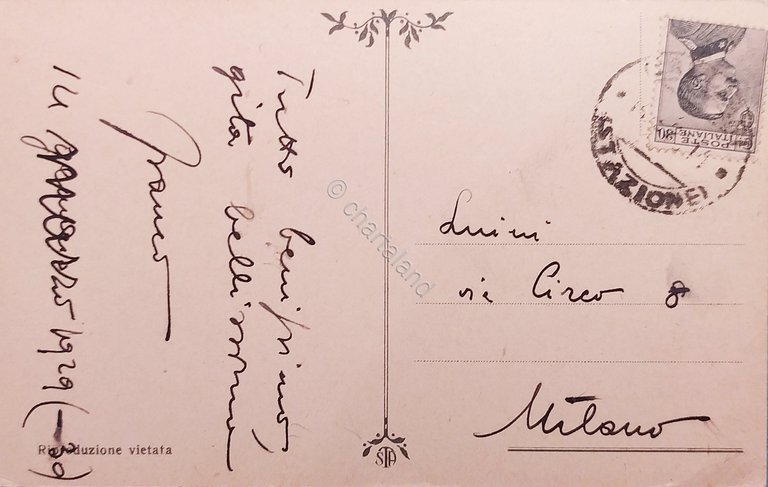 Tutto benissimo,
gita bellissima
Franco
14 marzo 1929 (-39)
Luini
via Circo 8
Milano
STAZIONE
POSTE
ITALIANE
30
Riproduzione vietata
STA
© chartaland